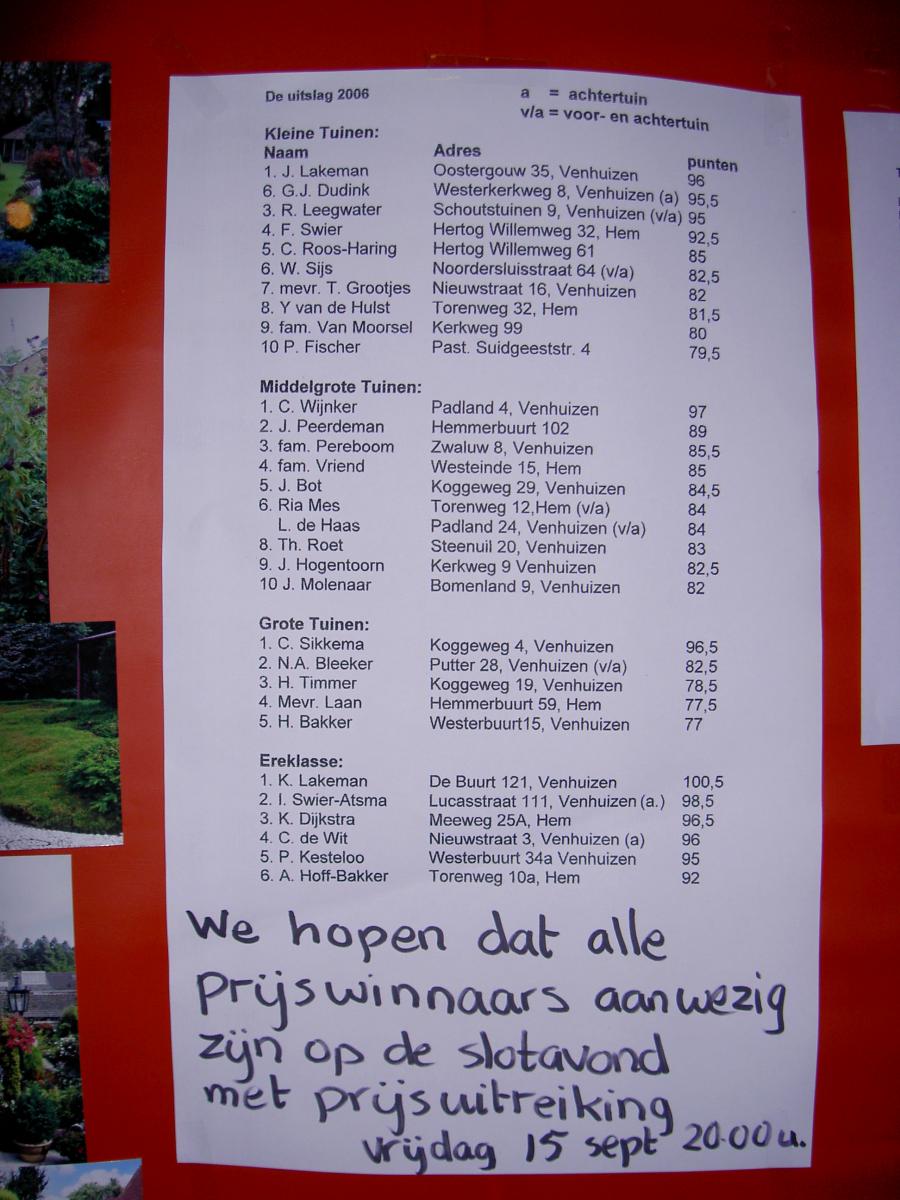 De uitslag 2006 a = achtertuin
v/a = voor- en achtertuin
Kleine Tuinen:
Naam Adres punten
1. J. Lakeman Oostergouw 35, Venhuizen 96
6. G.J. Dudink Westerkerkweg 8, Venhuizen (a) 95,5
3. R. Leegwater Schoutstuinen 9, Venhuizen (v/a) 95
4. F. Swier Hertog Willemweg 32, Hem 92,5
5. C. Roos-Haring Hertog Willemweg 61 85
6. W. Sijs Noordersluisstraat 64 (v/a) 82,5
7. mevr. T. Grootjes Nieuwstraat 16, Venhuizen 82
8. Y van de Hulst Torenweg 32, Hem 81,5
9. fam. Van Moorsel Kerkweg 99 80
10 P. Fischer Past. Suidgeeststr. 4 79,5
Middelgrote Tuinen:
1. C. Wijnker Padland 4, Venhuizen 97
2. J. Peerdeman Hemmerbuurt 102 89
3. fam. Pereboom Zwaluw 8, Venhuizen 85,5
4. fam. Vriend Westeinde 15, Hem 85
5. J. Bot Koggeweg 29, Venhuizen 84,5
6. Ria Mes Torenweg 12,Hem (v/a) 84
L. de Haas Padland 24, Venhuizen (v/a) 84
8. Th. Roet Steenuil 20, Venhuizen 83
9. J. Hogentoorn Kerkweg 9 Venhuizen 82,5
10 J. Molenaar Bomenland 9, Venhuizen 82
Grote Tuinen:
1. C. Sikkema Koggeweg 4, Venhuizen 96,5
2. N.A. Bleeker Putter 28, Venhuizen (v/a) 82,5
3. H. Timmer Koggeweg 19, Venhuizen 78,5
4. Mevr. Laan Hemmerbuurt 59, Hem 77,5
5. H. Bakker Westerbuurt15, Venhuizen 77
Ereklasse:
1. K. Lakeman De Buurt 121, Venhuizen 100,5
2. I. Swier-Atsma Lucasstraat 111, Venhuizen (a.) 98,5
3. K. Dijkstra Meeweg 25A, Hem 96,5
4. C. de Wit Nieuwstraat 3, Venhuizen (a) 96
5. P. Kesteloo Westerbuurt 34a Venhuizen 95
6. A. Hoff-Bakker Torenweg 10a, Hem 92
We hopen dat alle
prijswinnaars aanwezig
zijn op de slotavond
met prijsuitreiking
vrijdag 15 sept 20.00 u.